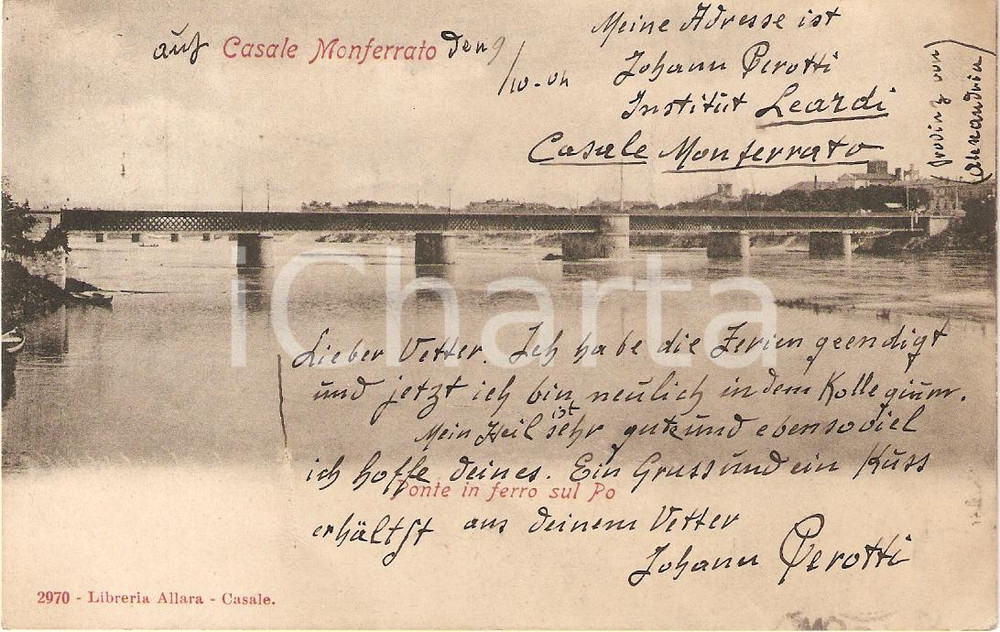 auf Casale Monferrato den 9/10-04
Meine Adresse ist
Johann Perotti
Institut Leardi
Casale Monferrato
(Provinz von
Alexandria)
iCharta
Lieber Vetter. Ich habe die Ferien geendigt
und jetzt ich bin neulich in dem Kollegium.
Mein Heil ist sehr gut und ebensoviel
ich hoffe deines. Ein Gruss und ein Kuss
Ponte in ferro sul Po
erhältst aus deinem Vetter
Johann Perotti
2970 - Libreria Allara - Casale.